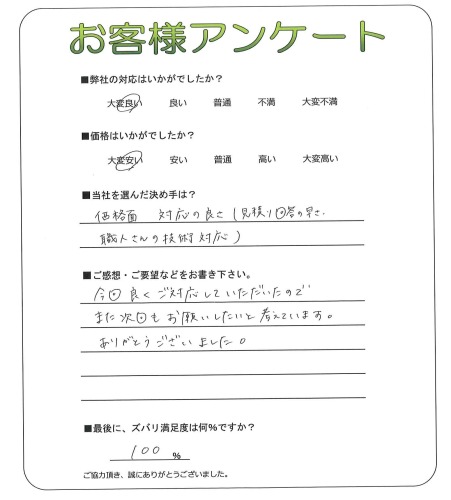 お客様アンケート
■弊社の対応はいかがでしたか？
大変良い 良い 普通 不満 大変不満
■価格はいかがでしたか？
大変安い 安い 普通 高い 大変高い
■当社を選んだ決め手は？
価格面 対応の良さ(見積り回答の早さ、
職人さんの技術対応)
■ご感想・ご要望などをお書き下さい。
今回良くご対応していただいたので
また次回もお願いしたいと考えています。
ありがとうございました。
■最後に、ズバリ満足度は何%ですか？
100 %
ご協力頂き、誠にありがとうございました。